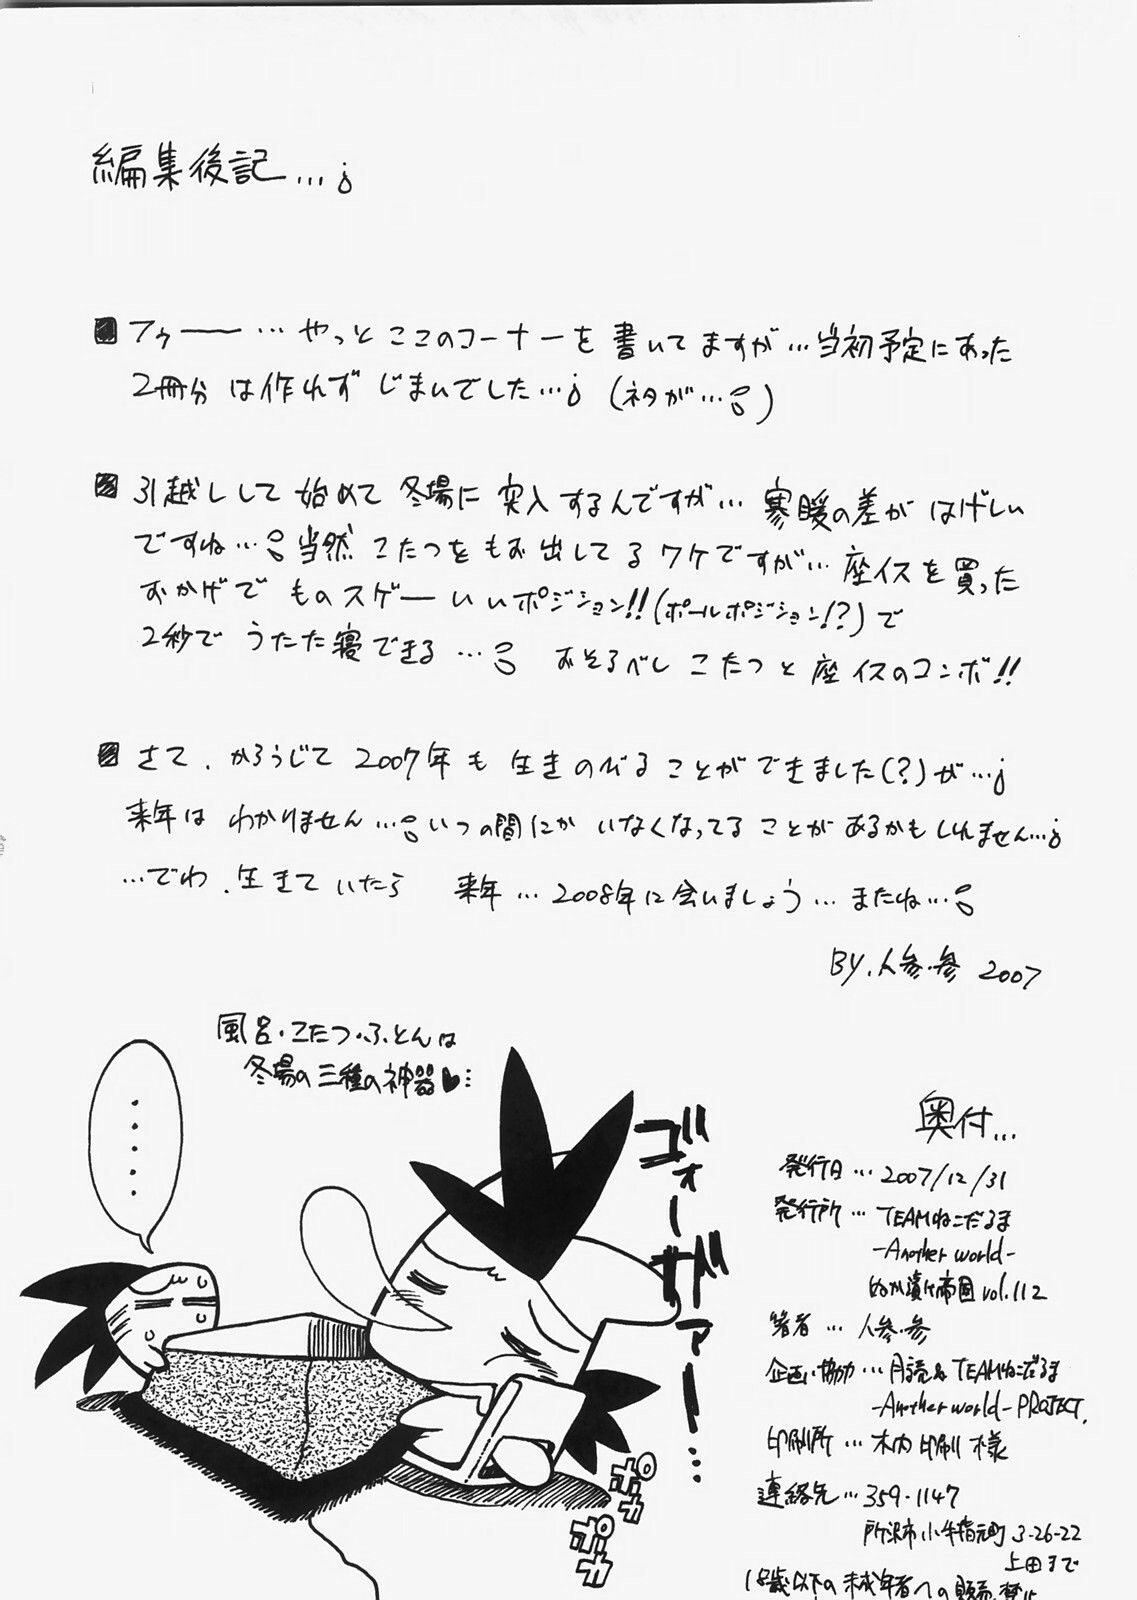 編集後記...
フゥー ... やっとここのコーナーを書いてますが...当初予定にあった
2冊分は作れずじまいでした... (ネタが...)
引越しして始めて冬場に突入するんですが... 寒暖の差がはげしい
ですね... 当然こたつをもお出ししてるワケですが... 座イスを買った
おかげでものスゲーいいポジション!! (ポールポジション!?) で
2秒でうたた寝できる ... おそるべしこたつと座イスのコンボ!!
さて、かろうじて2007年も生きのびることができました(?)が...
来年はわかりません... いつの間にかいなくなってることがあるかもしれません...
...でわ、生きていたら 来年 ... 2008年に会いましょう ... またね...
BY.人参.参 2007
風呂・こたつ・ふとんは
冬場の三種の神器♥...
・・・・・
ゴォーガァー...
ポカ
ポカ
奥付...
発行日 ... 2007/12/31
発行所 ... TEAMねこだるま
-Another world-
ぬか漬け帝国 vol.112
著者 ... 人参.参
企画・協力 ... 月読&TEAMねこだるま
-Another world- PROJECT.
印刷所 ... 木内印刷様
連絡先 ... 359-1147
所沢市小手指元町 3-26-22
上田まで
18歳以下の未成年者への販売.禁止